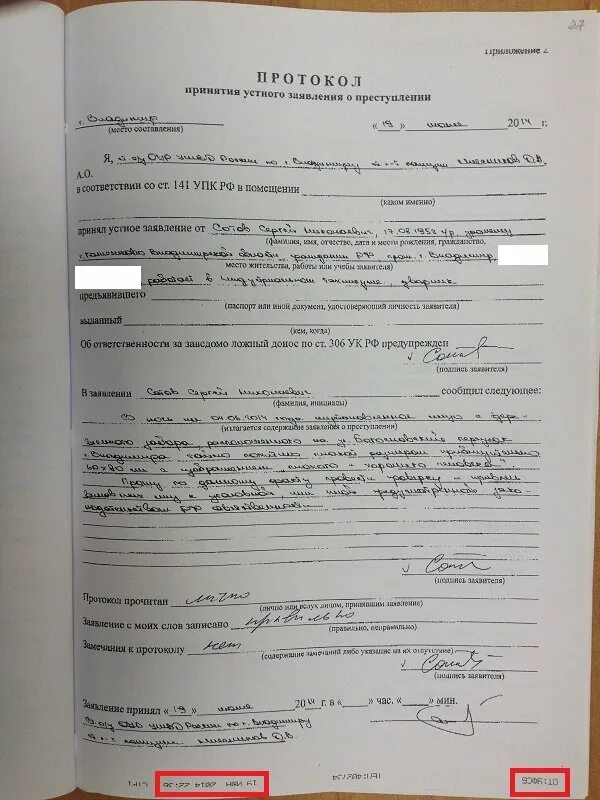 27
Приложение 2
ПРОТОКОЛ
принятия устного заявления о преступлении
г. Владимир
(место составления)
« 19 » июня 2014 г.
Я, о/у ОУР УМВД России по г. Владимиру к-н полиции Мясников Д.В.
А.О.
в соответствии со ст. 141 УПК РФ в помещении
(каком именно)
принял устное заявление от Сотов Сергей Николаевич, 17.08.1952 г/р, уроженец
(фамилия, имя, отчество, дата и место рождения, гражданство,
Владимирской области, гражданин РФ, г. Владимир
место жительства, работы или учебы заявителя)
работает в дворник
предъявившего
(паспорт или иной документ, удостоверяющий личность заявителя)
выданный
(кем, когда)
Об ответственности за заведомо ложный донос по ст. 306 УК РФ предупрежден
(подпись заявителя)
В заявлении Сотов Сергей Николаевич сообщил следующее:
(фамилия, инициалы)
В ночь на 04.06.2014 года неустановленное лицо с дере-
(излагается содержание заявления о преступлении)
вянного забора, расположенного на ул.
г. Владимира тайно похитило размером приблизительно
60х80 мм с изображением "плохого и хорошего человека".
Прошу по данному факту провести проверку и привлечь
виновных лиц к уголовной или иной предусмотренной зако-
нодательством РФ ответственности.
(подпись заявителя)
Протокол прочитан лично
(лично или вслух лицом, принявшим заявление)
Заявление с моих слов записано правильно
(правильно, неправильно)
Замечания к протоколу нет
(содержание замечаний либо указание на их отсутствие)
(подпись заявителя)
Заявление принял « 19 » июня 2014 г. в « » час. « » мин.
о/у УМВД России по г. Владимиру
к-н полиции Мясников Д.В.
ОТ:УФСБ
19 ИЮН 2014 22:36 СТР1